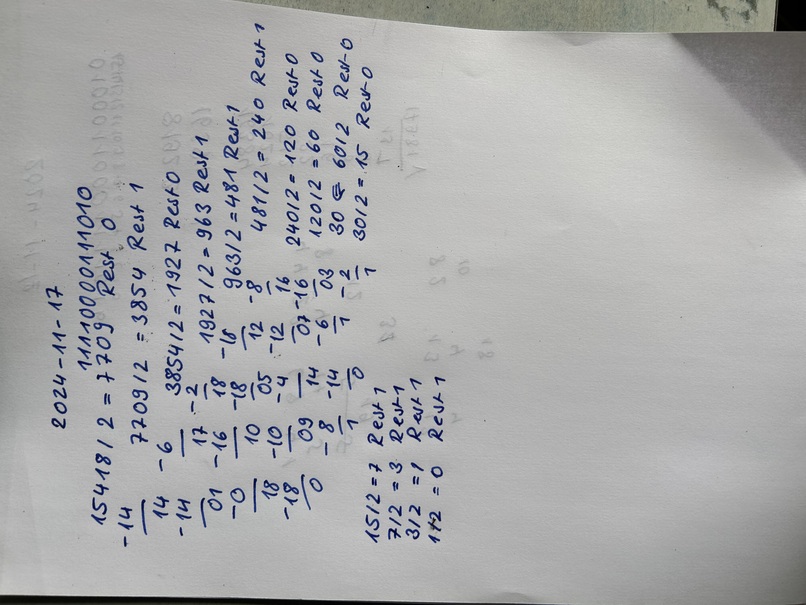 2024-11-17
11110000111010
15418/2 = 7709 Rest 0
-14 7709/2 = 3854 Rest 1
14 -6 3854/2 = 1927 Rest 0
-14 17 -2 1927/2 = 963 Rest 1
01 -16 18 -18 963/2 = 481 Rest 1
-0 10 -18 12 -8 481/2 = 240 Rest 1
18 -10 05 -12 16 240/2 = 120 Rest 0
-18 09 -4 07 -16 120/2 = 60 Rest 0
0 -8 14 -6 03 30 = 60/2 Rest 0
1 -14 1 -2 30/2 = 15 Rest 0
0 1
15/2 = 7 Rest 1
7/2 = 3 Rest 1
3/2 = 1 Rest 1
1/2 = 0 Rest 1